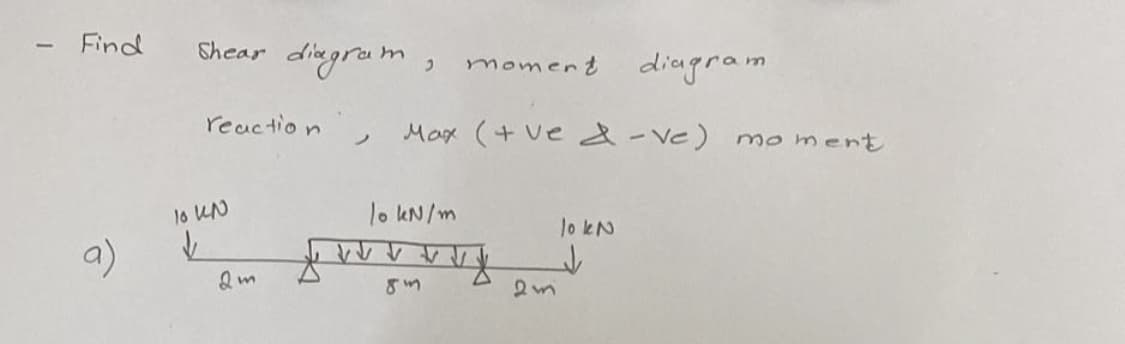 - Find Shear diagram, moment diagram
reaction, Max (+ve & -ve) moment
10 kN 10 kN/m 10 kN
a)
2m 8m 2m